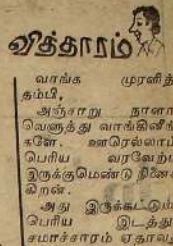 வித்தாரம்
வாங்க முரளித்
தம்பி,
அஞ்சாறு நாளா
வெளுத்து வாங்கினீங்
களே. ஊரெல்லாம்
பெரிய வரவேற்பு
இருக்குமெண்டு நினைக்
கிறன்.
அது இருக்கட்டும்
பெரிய இடத்து
சமாச்சாரம் ஏதாவது